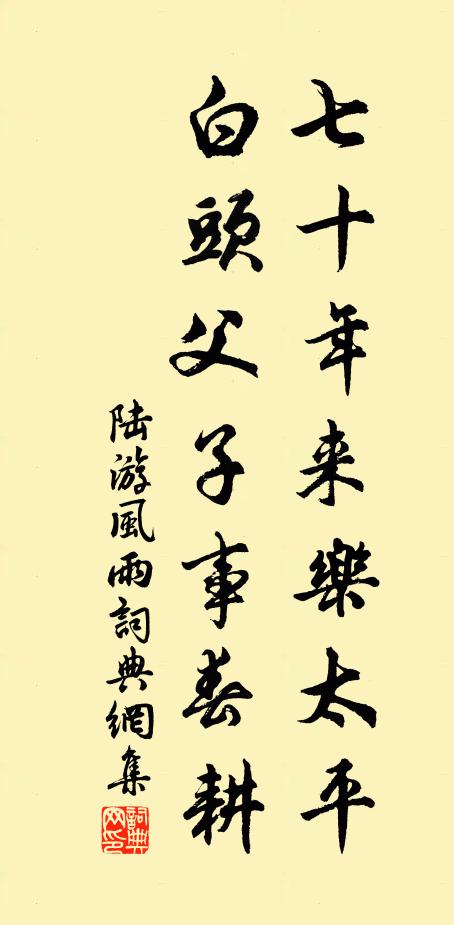 七十年来樂太平
白頭父子事春耕
陆游風雨詞典網集
詞典
网印